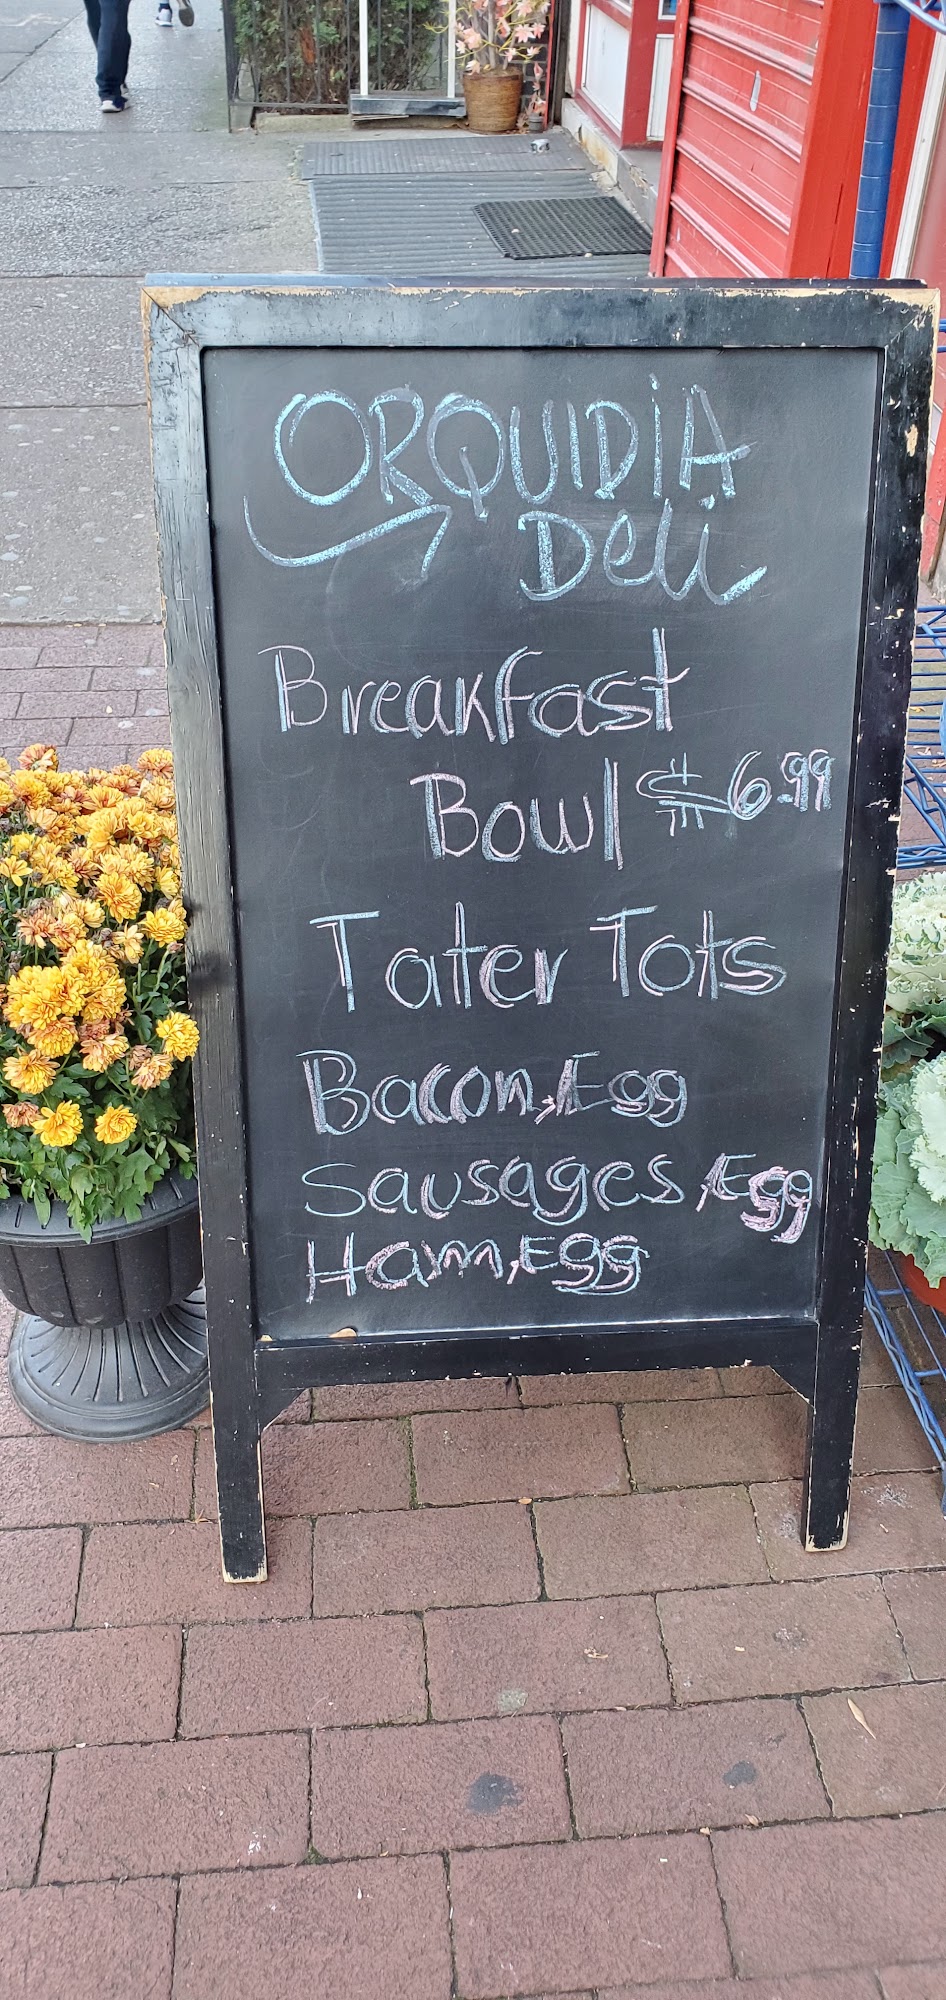 ORQUIDiA
Deli
Breakfast
Bowl $6.99
Tater Tots
Bacon, Egg
Sausages, Egg
Ham, Egg